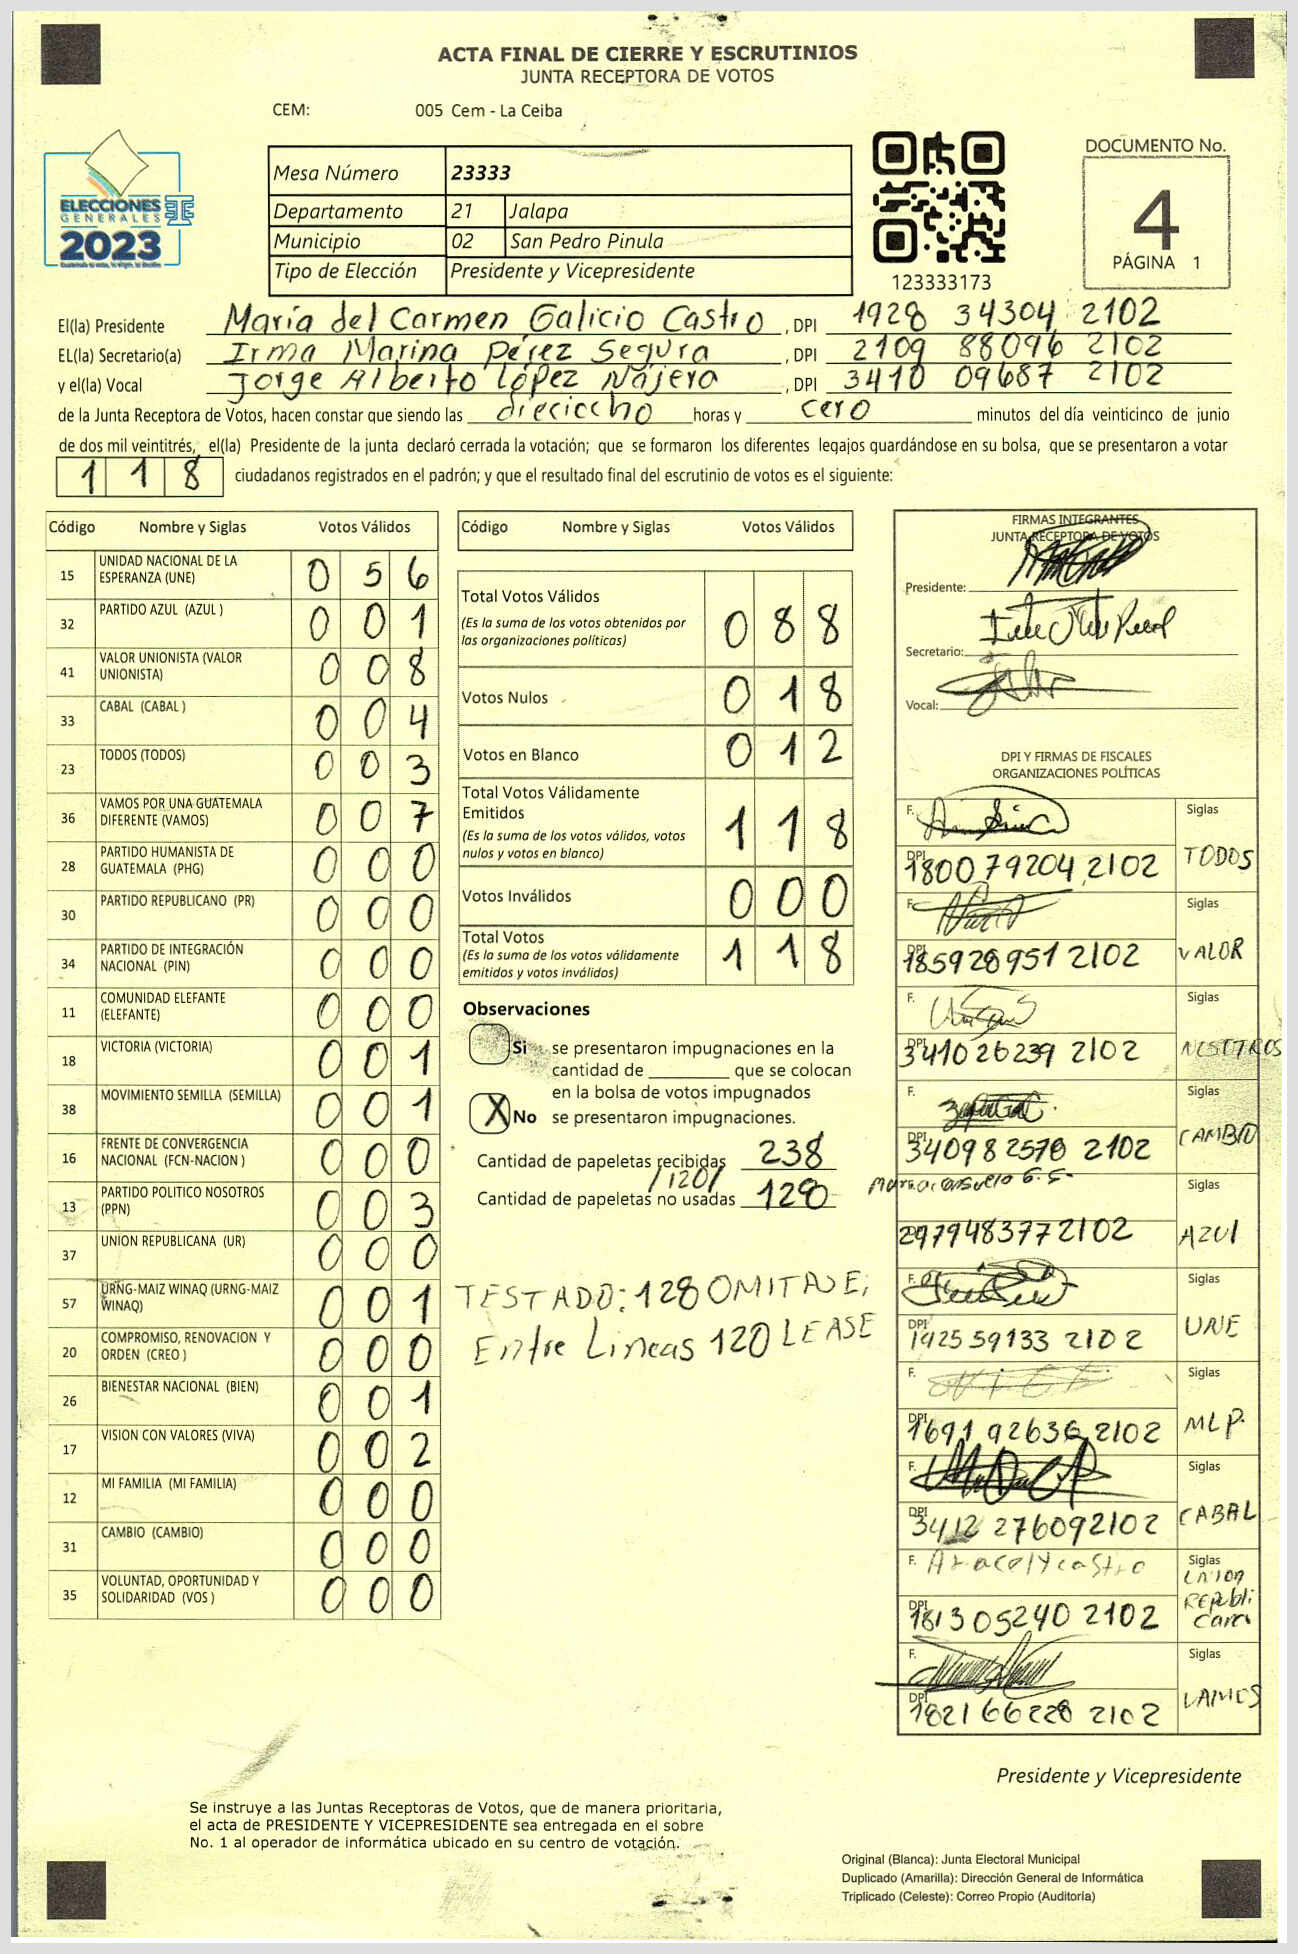 ACTA FINAL DE CIERRE Y ESCRUTINIOS
JUNTA RECEPTORA DE VOTOS
CEM: 005 Cem - La Ceiba
ELECCIONES
GENERALES
2023
Mesa Número 23333
Departamento 21 Jalapa
Municipio 02 San Pedro Pinula
Tipo de Elección Presidente y Vicepresidente
123333173
DOCUMENTO No.
4
PÁGINA 1
El(la) Presidente María del Carmen Galicio Castro, DPI 1928 34304 2102
EL(la) Secretario(a) Irma Marina Pérez Segura, DPI 2109 88096 2102
y el(la) Vocal Jorge Alberto López Nájera, DPI 3410 09687 2102
de la Junta Receptora de Votos, hacen constar que siendo las dieciocho horas y cero minutos del día veinticinco de junio
de dos mil veintitrés, el(la) Presidente de la junta declaró cerrada la votación; que se formaron los diferentes legajos guardándose en su bolsa, que se presentaron a votar
118 ciudadanos registrados en el padrón; y que el resultado final del escrutinio de votos es el siguiente:
Código Nombre y Siglas Votos Válidos
15 UNIDAD NACIONAL DE LA ESPERANZA (UNE) 0 5 6
32 PARTIDO AZUL (AZUL ) 0 0 1
41 VALOR UNIONISTA (VALOR UNIONISTA) 0 0 8
33 CABAL (CABAL ) 0 0 4
23 TODOS (TODOS) 0 0 3
36 VAMOS POR UNA GUATEMALA DIFERENTE (VAMOS) 0 0 7
28 PARTIDO HUMANISTA DE GUATEMALA (PHG) 0 0 0
30 PARTIDO REPUBLICANO (PR) 0 0 0
34 PARTIDO DE INTEGRACIÓN NACIONAL (PIN) 0 0 0
11 COMUNIDAD ELEFANTE (ELEFANTE) 0 0 0
18 VICTORIA (VICTORIA) 0 0 1
38 MOVIMIENTO SEMILLA (SEMILLA) 0 0 1
16 FRENTE DE CONVERGENCIA NACIONAL (FCN-NACION ) 0 0 0
13 PARTIDO POLITICO NOSOTROS (PPN) 0 0 3
37 UNION REPUBLICANA (UR) 0 0 0
57 URNG-MAIZ WINAQ (URNG-MAIZ WINAQ) 0 0 1
20 COMPROMISO, RENOVACION Y ORDEN (CREO ) 0 0 0
26 BIENESTAR NACIONAL (BIEN) 0 0 1
17 VISION CON VALORES (VIVA) 0 0 2
12 MI FAMILIA (MI FAMILIA) 0 0 0
31 CAMBIO (CAMBIO) 0 0 0
35 VOLUNTAD, OPORTUNIDAD Y SOLIDARIDAD (VOS ) 0 0 0
Código Nombre y Siglas Votos Válidos
Total Votos Válidos 0 8 8
(Es la suma de los votos obtenidos por
las organizaciones políticas)
Votos Nulos 0 1 8
Votos en Blanco 0 1 2
Total Votos Válidamente
Emitidos 1 1 8
(Es la suma de los votos válidos, votos
nulos y votos en blanco)
Votos Inválidos 0 0 0
Total Votos 1 1 8
(Es la suma de los votos válidamente
emitidos y votos inválidos)
Observaciones
Si se presentaron impugnaciones en la
cantidad de ________ que se colocan
en la bolsa de votos impugnados
X No se presentaron impugnaciones.
Cantidad de papeletas recibidas 238
/120/
Cantidad de papeletas no usadas 128
TESTADO: 128 OMITASE;
Entre Lineas 120 LEASE
FIRMAS INTEGRANTES
JUNTA RECEPTORA DE VOTOS
Presidente:
Secretario:
Vocal:
DPI Y FIRMAS DE FISCALES
ORGANIZACIONES POLÍTICAS
F. Siglas
DPI 1800 79204 2102 TODOS
F. Siglas
DPI 185928951 2102 VALOR
F. Siglas
DPI 341026239 2102 NOSOTROS
F. Siglas
DPI 340982578 2102 CAMBIO
Siglas
297948377 2102 AZUl
F. Siglas
DPI 192559133 2102 UNE
F. Siglas
DPI 1691 92636 2102 MLP.
F. Siglas
DPI 3412 27609 2102 CABAL
F. Aracely castro Siglas
DPI 181305240 2102 Union Republicana
F. Siglas
DPI 182166228 2102 VAMOS
Presidente y Vicepresidente
Se instruye a las Juntas Receptoras de Votos, que de manera prioritaria,
el acta de PRESIDENTE Y VICEPRESIDENTE sea entregada en el sobre
No. 1 al operador de informática ubicado en su centro de votación.
Original (Blanca): Junta Electoral Municipal
Duplicado (Amarilla): Dirección General de Informática
Triplicado (Celeste): Correo Propio (Auditoría)